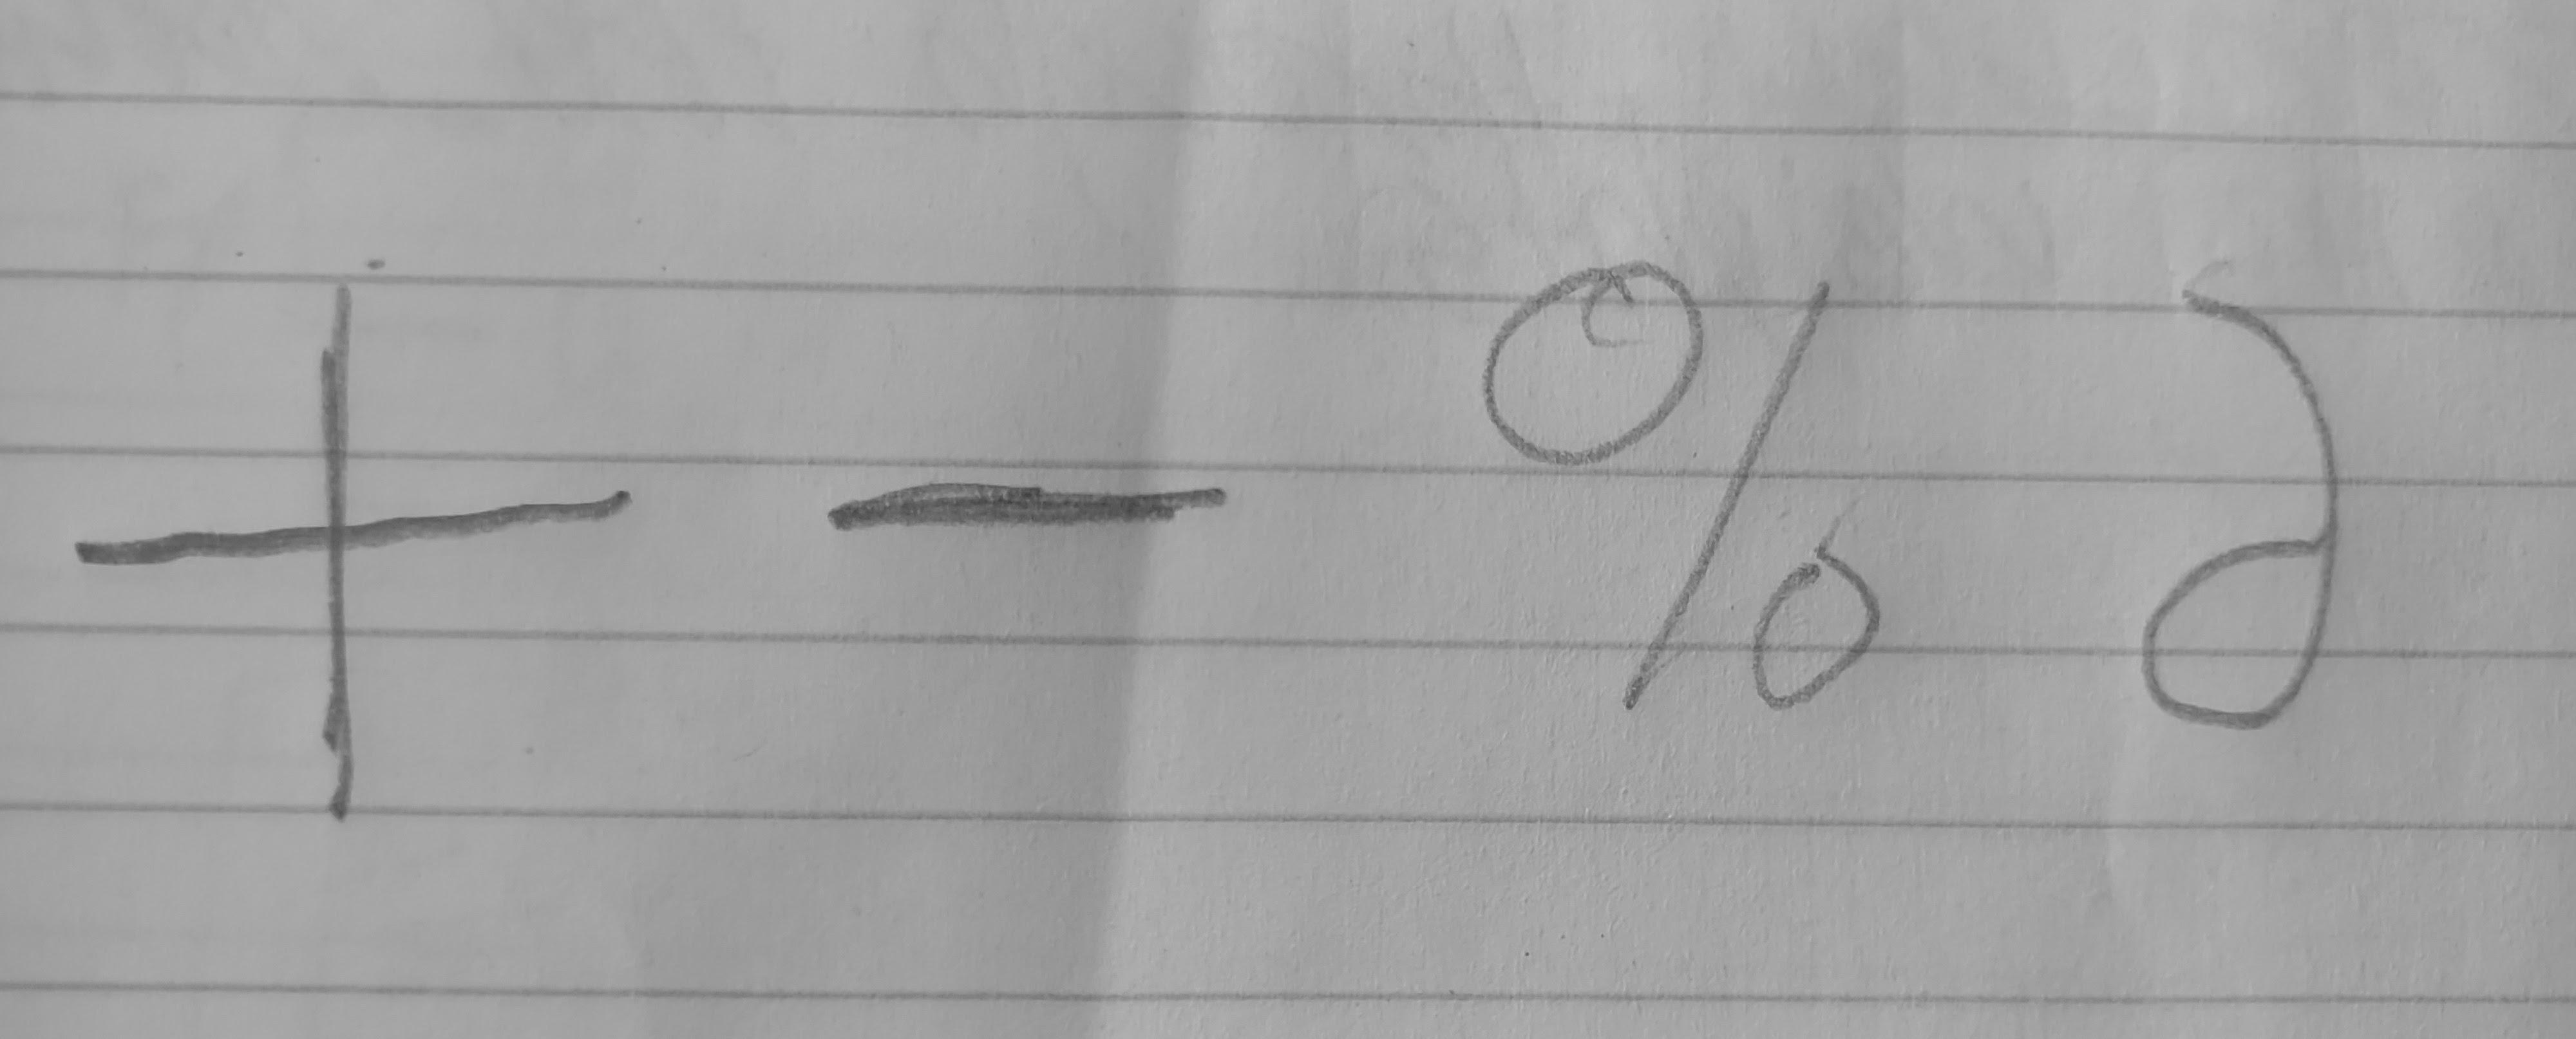 + - % ∂